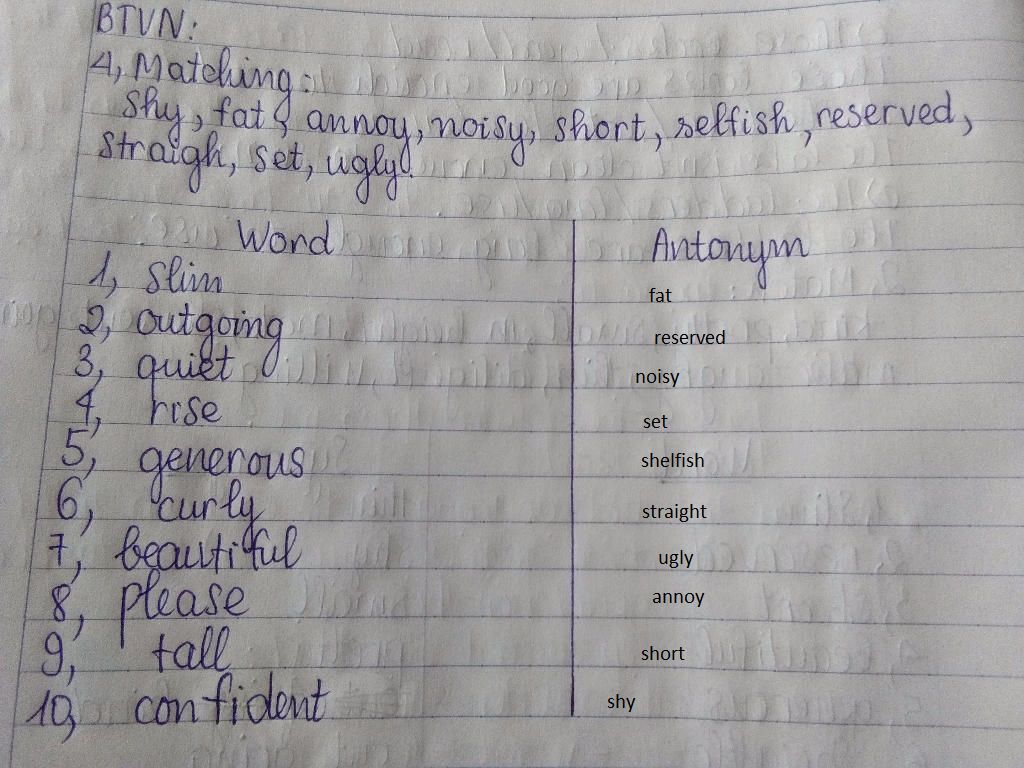 BTVN:
4, Matching:
Shy, fat, annoy, noisy, short, selfish, reserved,
straigh, set, ugly.
Word Antonym
1, slim fat
2, outgoing reserved
3, quiet noisy
4, rise set
5, generous shelfish
6, curly straight
7, beautiful ugly
8, please annoy
9, tall short
10, confident shy